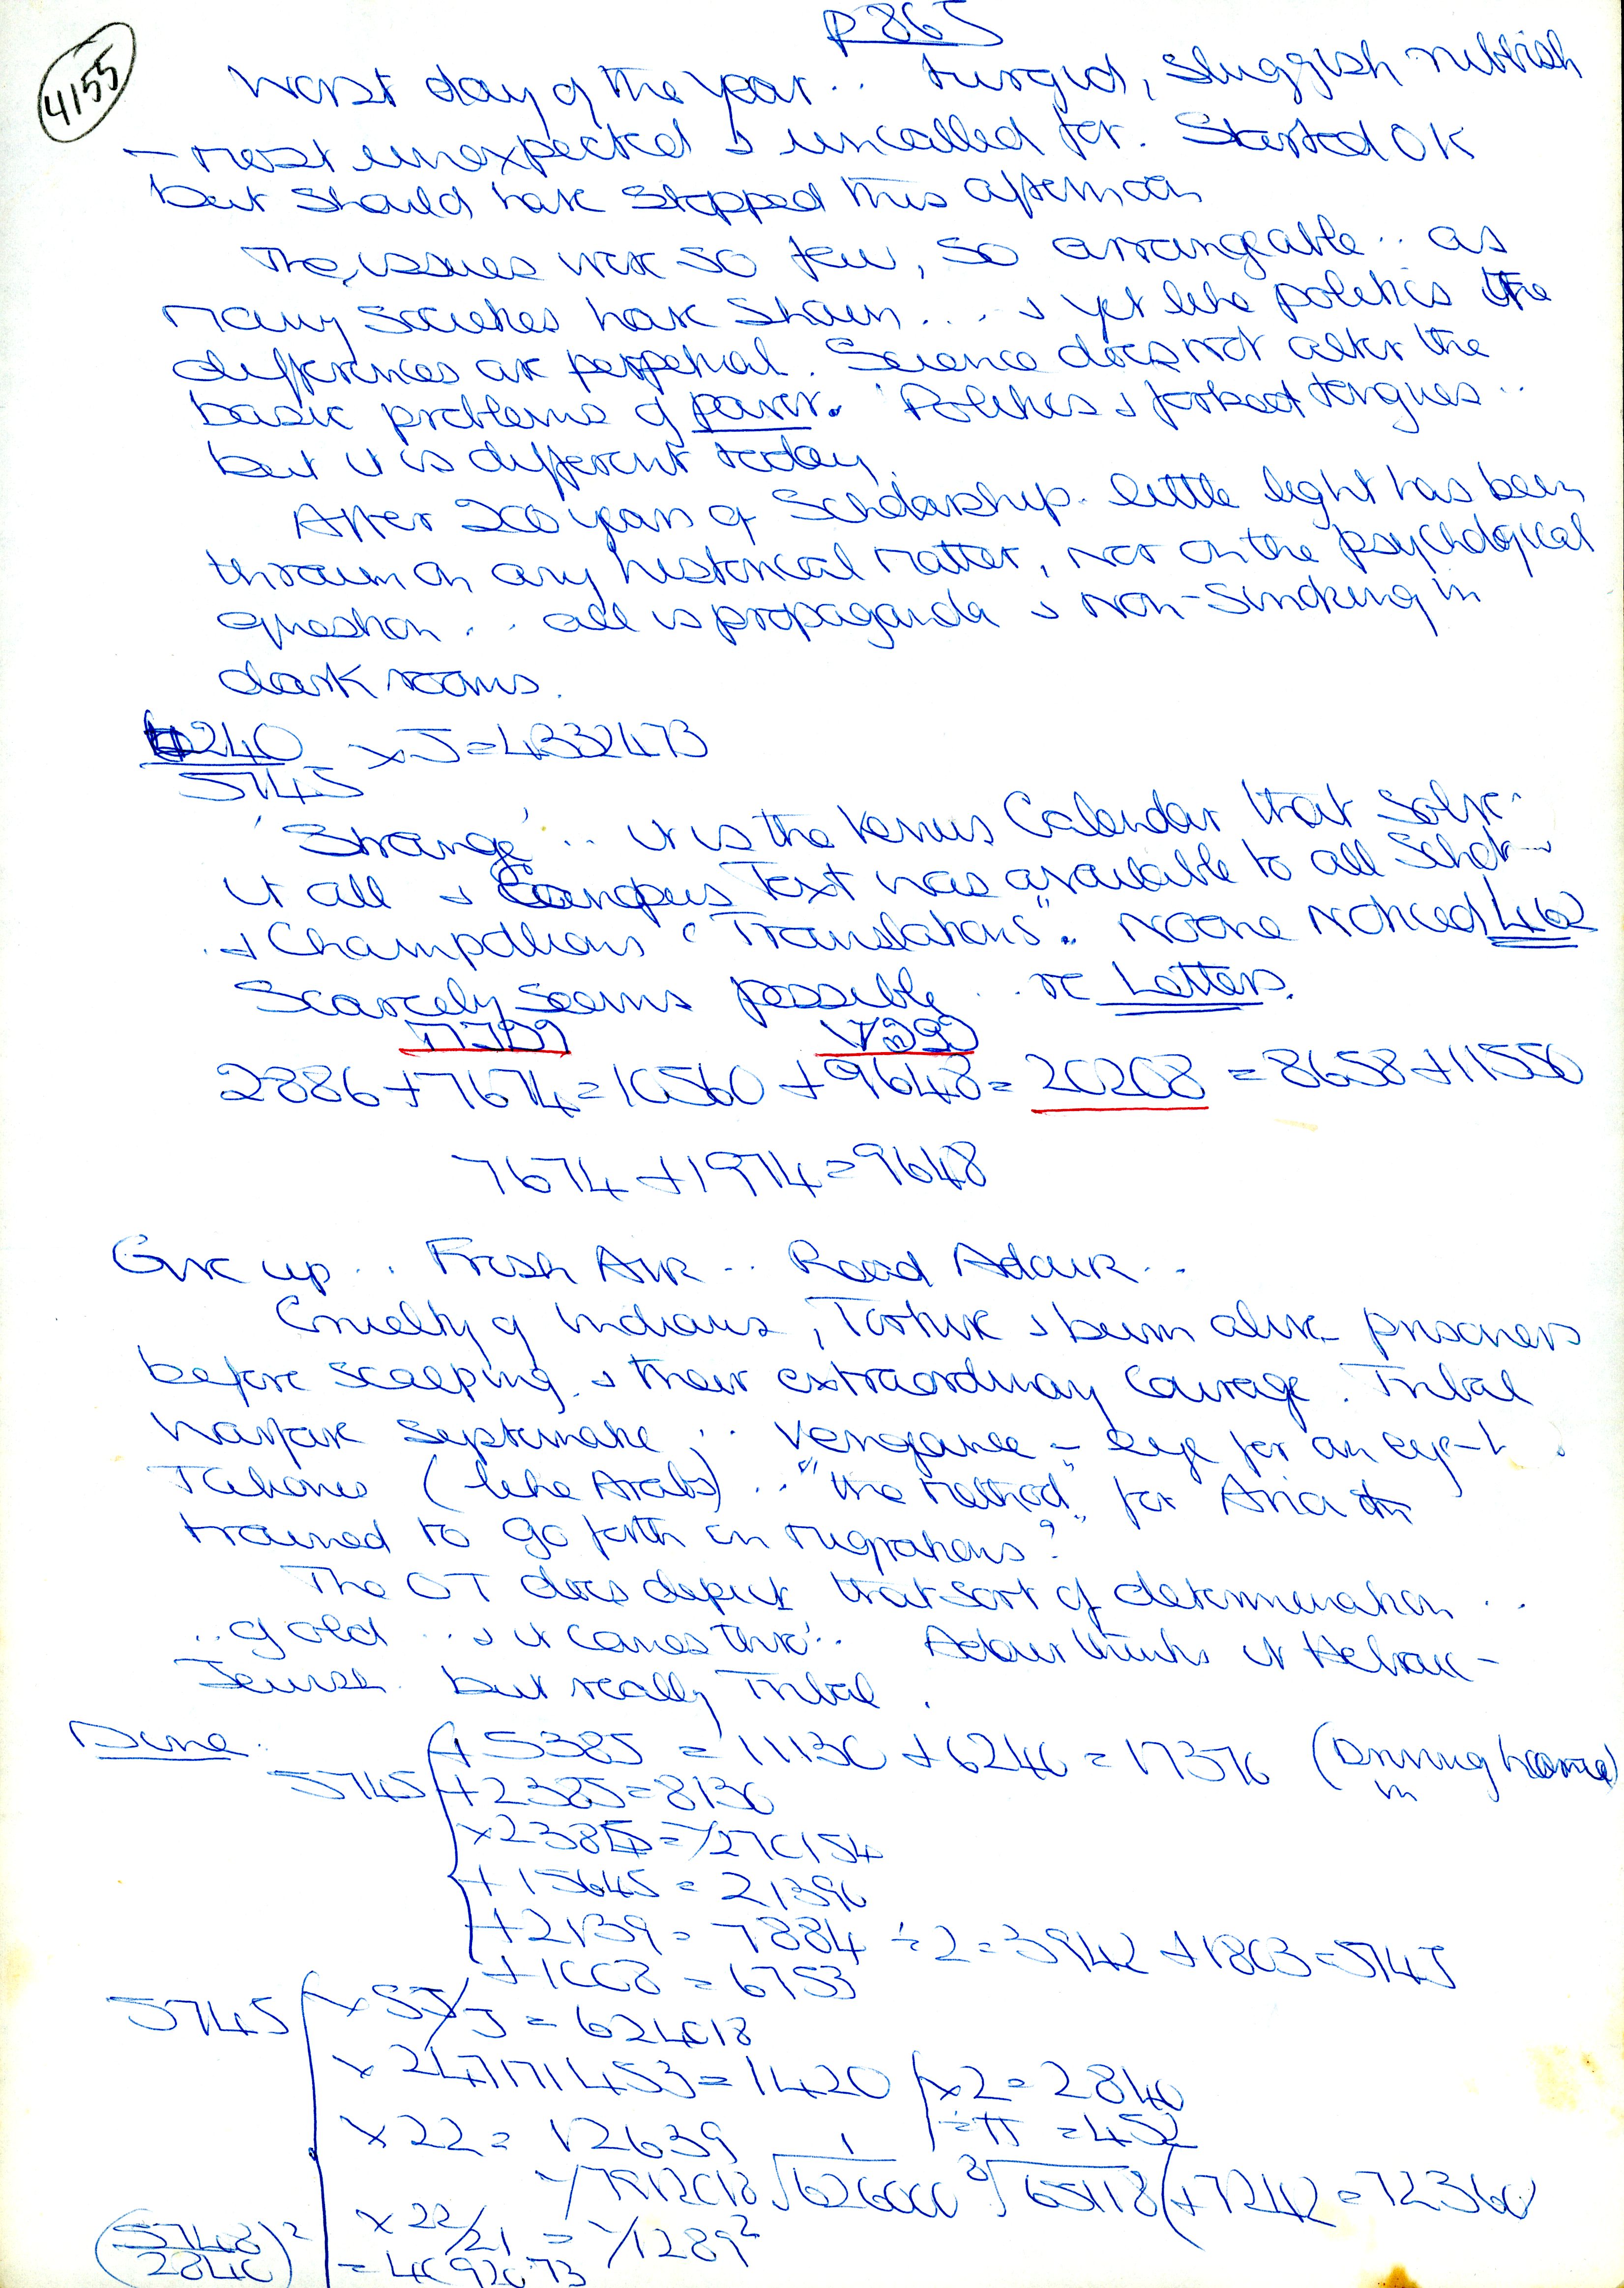 p865
4155
Worst day of the year.. turgid, sluggish rubbish
- most unexpected & uncalled for. Started OK
but should have stopped this afternoon
The issues were so few, so arrangeable .. as
many societies have shown ... & yet like politics the
differences are perpetual. Science does not alter the
basic problems of power. Politics & forked tongues ..
but it is different today.
After 200 years of Scholarship. little light has been
thrown on any historical matter, nor on the psychological
question .. all is propaganda & non-smoking in
dark rooms.
240
5745 x 5 = 4332473
'Strange' .. it is the Venus Calendar that solve
it all & Canopus Text was available to all Schol
& Champollions "Translations". Noone Noticed 462
Scarcely seems possible .. re Letters.
2886+7674=10560+9648=20208=8658+11550
7674+1974=9648
Give up .. Fresh Air .. Read Adair ..
Cruelty of Indians, Torture & burn alive prisoners
before scalping & their extraordinary courage. Tribal
Warfare .. Vengeance - eye for an eye
(like Arabs) .. "the method" for
trained to go forth in migrations?
The OT does depict that sort of determination ..
.. of old .. & it comes thro' .. Adair thinks it Hebraic -
Jewish but really Tribal.
Done.
+5385 = 11130 + 6240 = 17370
5745 +2385=8130
x2385=1/270154
+15645 = 21390
+2139 = 7884 ÷2=3942 +1803=5745
+1008 = 6753
5745
= 624018
x 247171453=1420 x2=2840
÷π =452
x22= 12639
626000 ³√65118 +7242=72360
x22/21 = 1/1289²
(5748/2840)² = 4092073